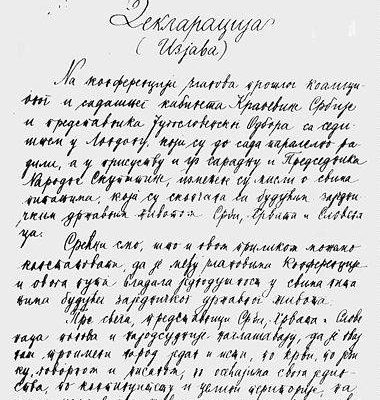 Декларација
(Изјава)
На конференцији чланова прошлог коалицио-
ног и садашњег кабинета Краљевине Србије
и представника Југословенског Одбора са седи-
штем у Лондону, који су до сада паралелно ра-
дили, а у присуству и уз сарадњу и Председника
Народне Скупштине, измењене су мисли о свима
питањима, која су скопчана са будућим заједни-
чким државним животом Срба, Хрвата и Словена-
ца.
Срећни смо, што и овом приликом можемо
констатовати, да је међу члановима Конференције
и овога пута владала једнодушност у свима пита-
њима будућег заједничког државног живота.
Пре свега, представници Срба, Хрвата и Слове-
наца понова и најодсудније наглашавају, да је овај
наш троимени народ један и исти, по крви, по јези-
ку, говорном и писаном, по осећајима свога једин-
ства, по континуитету и целини територије, на